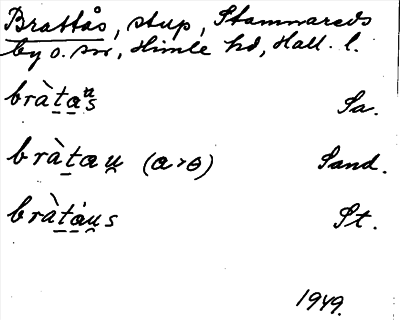 Brattås, stup, Stamnareds
by o. sn, Himle hd, Hall. l.
bràtaᵘs Sa.
bràtau (a>ɵ) Sand.
bràtaus St.
1949.